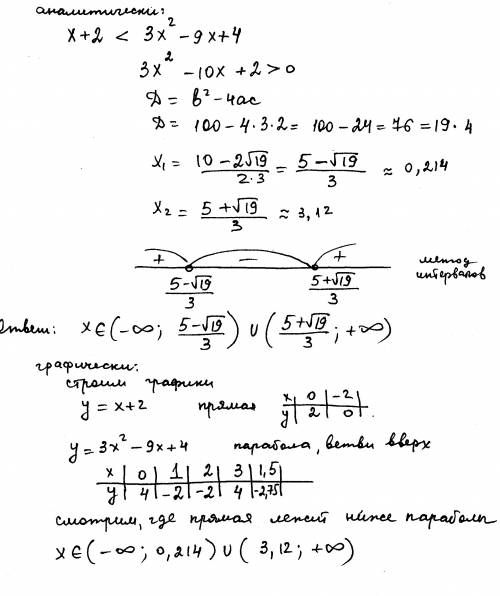 аналитически:
x+2 < 3x² -9x+4
3x² -10x +2>0
Д = в² -4ас
Д = 100 -4·3·2 = 100 -24 = 76 = 19·4
x₁ = (10 -2√19)/(2·3) = (5 -√19)/3 ≈ 0,214
x₂ = (5 +√19)/3 ≈ 3,12
+ − + метод
(5-√19)/3 (5+√19)/3 интервалов
Ответ: x∈(-∞; (5-√19)/3) ∪ ((5+√19)/3; +∞)
графически:
строим графики
y = x+2 прямая x 0 -2
y 2 0
y = 3x² -9x+4 парабола, ветви вверх
x 0 1 2 3 1,5
y 4 -2 -2 4 -2,75
смотрим, где прямая лежит ниже параболы
x∈(-∞; 0,214) ∪ ( 3,12; +∞)